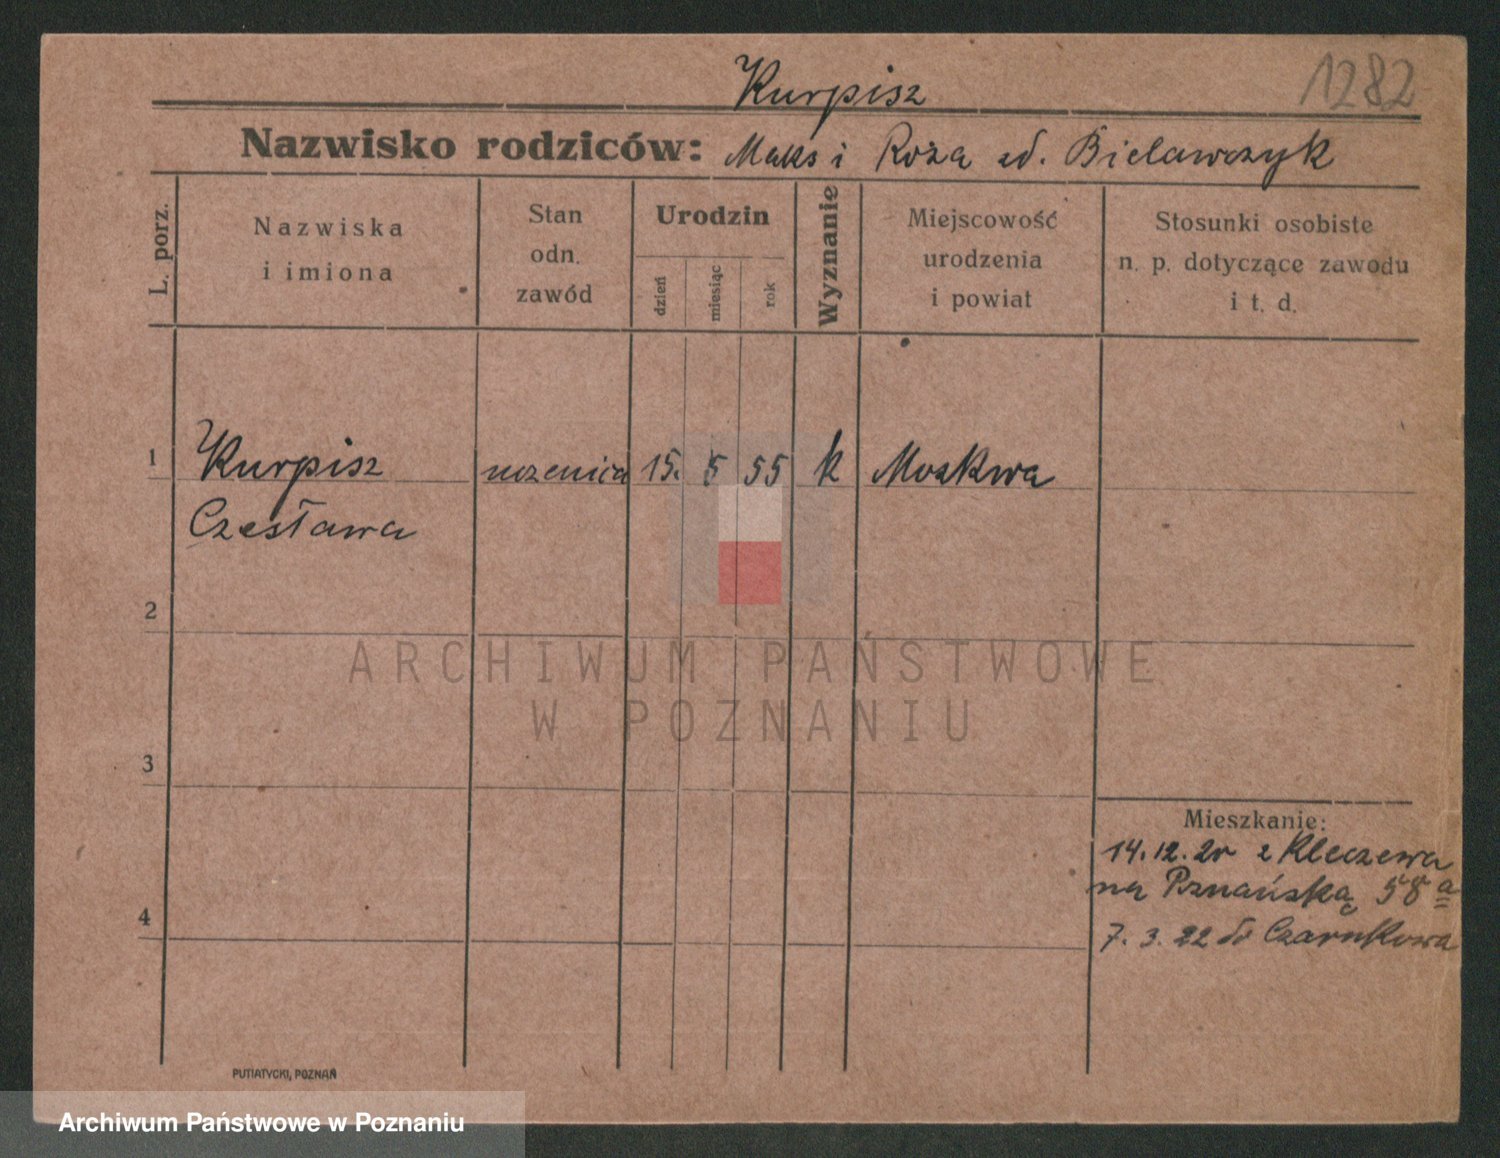 Kurpisz
1282
Nazwisko rodziców: Maks i Roża zd. Bielawczyk
L. porz.
Nazwiska
i imiona
Stan
odn.
zawód
Urodzin
dzień
miesiąc
rok
Wyznanie
Miejscowość
urodzenia
i powiat
Stosunki osobiste
n. p. dotyczące zawodu
i t. d.
1 Kurpisz uczenica 15. 5 55 k Moskwa
Czesława
2
ARCHIWUM PAŃSTWOWE
W POZNANIU
3
Mieszkanie:
14.12.20 z Kleczewa
na Poznańską 58 a
4
7. 3. 22 do Czarnkowa
PUTIATYCKI, POZNAŃ
Archiwum Państwowe w Poznaniu